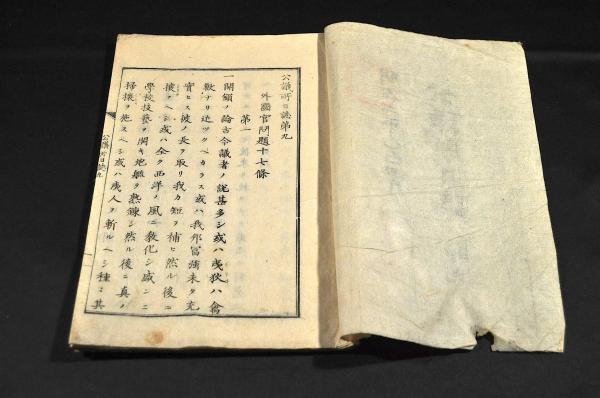 公議所日誌第九
外國官問題十七條
第一
一開鎖ノ論古今議者ノ說甚多シ或ハ夷狄ハ禽
獸ナリ近ツクヘカラス或ハ我邦冨強未タ充
實セス彼ノ長ヲ取リ我カ短ヲ補ヒ然ル後ニ
攘フヘシ或ハ全ク西洋ノ風ニ敎化シ盛ンニ
學校技藝ヲ開キ炮艦ヲ熟鍊シ然ル後ニ眞ノ
掃攘ヲ施スヘシ或ハ夷人ヲ斬ルヘシ種々其
公議所日誌九